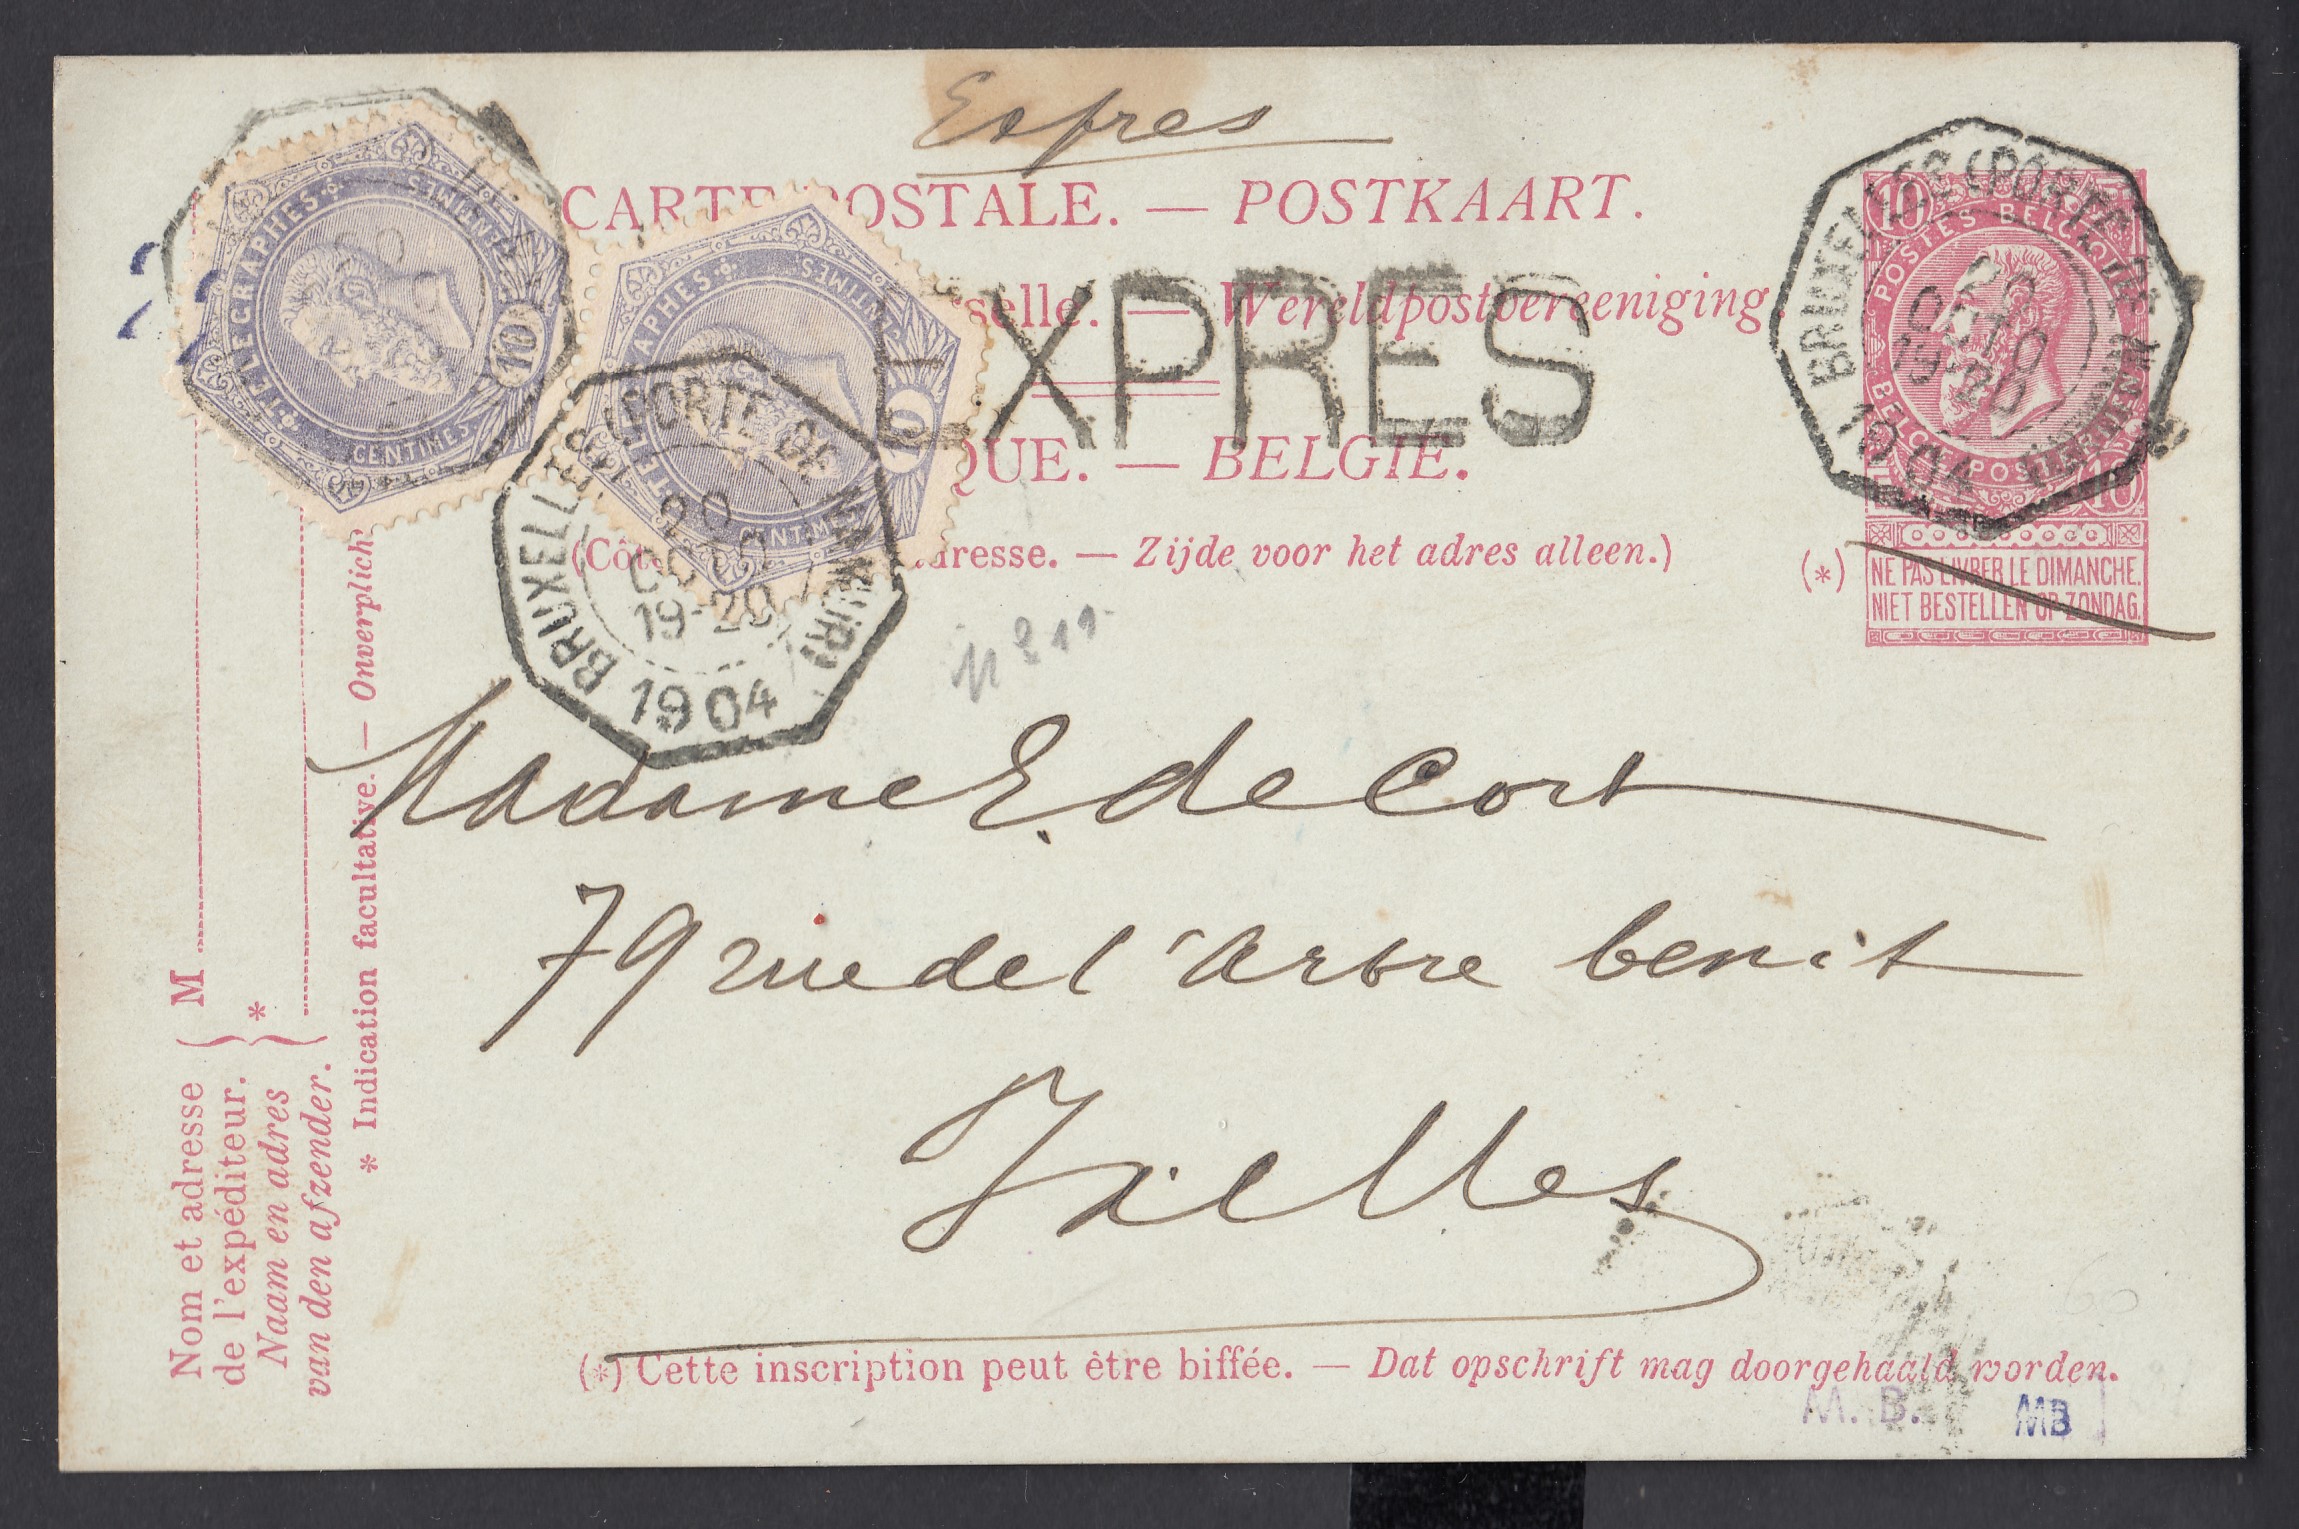 Expres
CARTE POSTALE. — POSTKAART.
selle. — Wereldpostvereeniging.
EXPRES
QUE. — BELGIE.
(Côt dresse. — Zijde voor het adres alleen.)
TELEGRAPHES
10 CENTIMES
CENTIMES
TELEGRAPHES
10 CENTIMES
CENTIMES
BRUXELLES (PORTE DE NAMUR)
20
OCT
19-20
1904
10
POSTES BELGIQUE
BELGIE POSTERIJEN
10
BRUXELLES (PORTE DE NAMUR)
20
OCT
19-20
1904
(*)
NE PAS LIVRER LE DIMANCHE.
NIET BESTELLEN OP ZONDAG.
Madame E. de Cort
79 rue de l'Arbre benit
Ixelles
M
*
Nom et adresse
de l'expéditeur.
Naam en adres
van den afzender.
* Indication facultative. — Onverplich
(*) Cette inscription peut être biffée. — Dat opschrift mag doorgehaald worden.
M. B.
MB
60